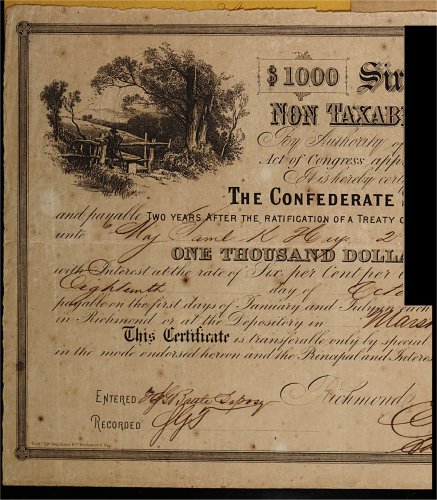 $1000 Six
NON TAXAB
By Authority of
Act of Congress app
It is hereby cert
THE CONFEDERATE
and payable TWO YEARS AFTER THE RATIFICATION OF A TREATY O
unto Maj Saml K Hays 2
ONE THOUSAND DOLLA
with Interest at the rate of Six per Cent per
Eighteenth day of Octo
payable on the first days of January and July in each
in Richmond or at the Depository in Mare
This Certificate is transferable only by special
in the mode endorsed hereon and the Principal and Interes
Richmond
ENTERED
RECORDED